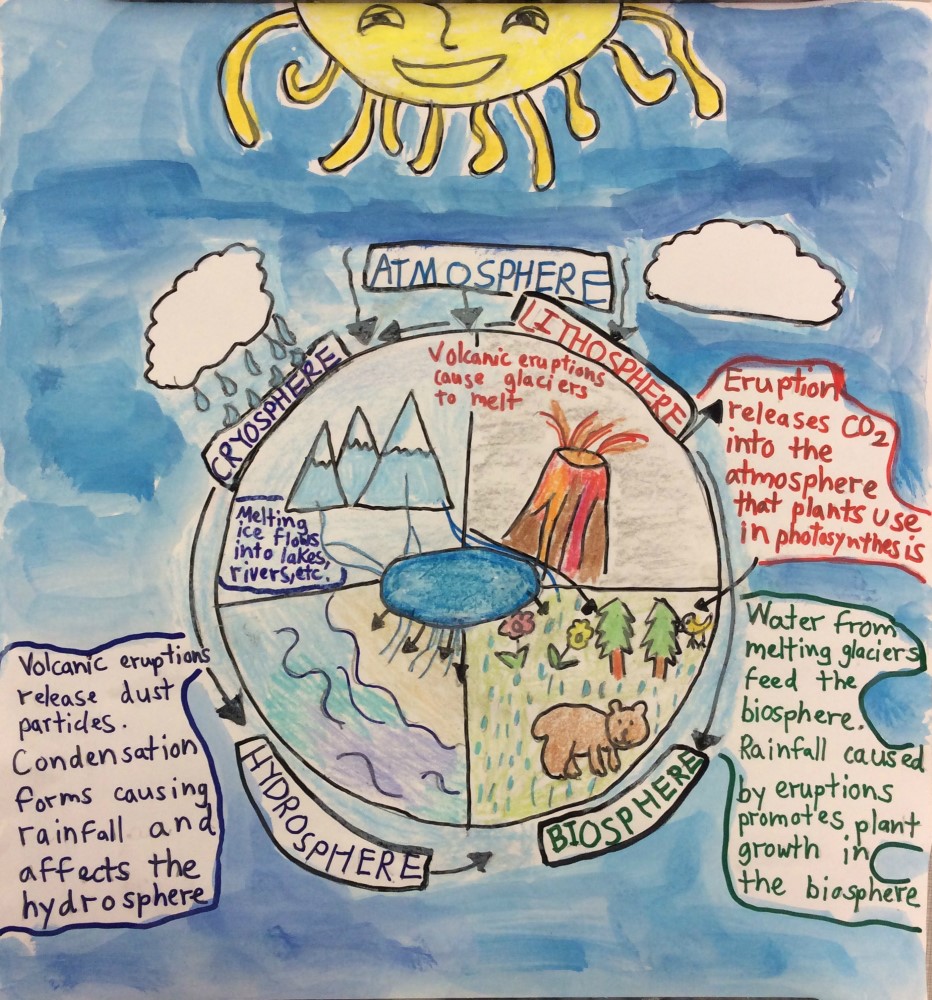 ATMOSPHERE
LITHOSPHERE
CRYOSPHERE
Volcanic eruptions
cause glaciers
to melt
Eruption
releases CO2
into the
atmosphere
that plants use
in photosynthesis
Melting
ice flows
into lakes,
rivers, etc.
Water from
melting glaciers
feed the
biosphere.
Rainfall caused
by eruptions
promotes plant
growth in
the biosphere
Volcanic eruptions
release dust
particles.
Condensation
forms causing
rainfall and
affects the
hydrosphere
HYDROSPHERE
BIOSPHERE